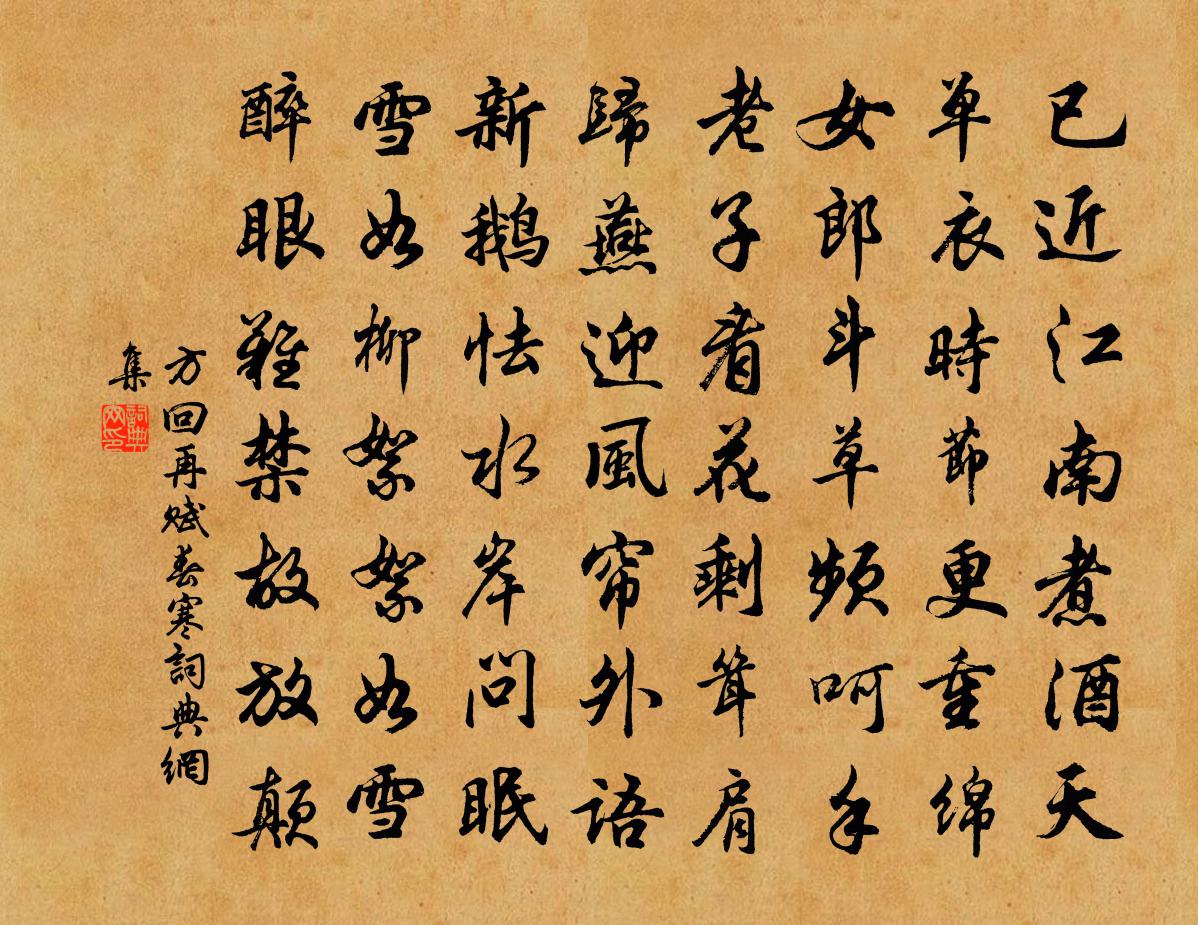 已近江南煮酒天
单衣時節更重绵
女郎斗草频呵手
老子看花剩耸肩
歸燕迎風帘外语
新鹅怯水岸问眠
雪如柳絮絮如雪
醉眼難禁故放颠
方回再赋春寒詞典網
集
詞典
网印